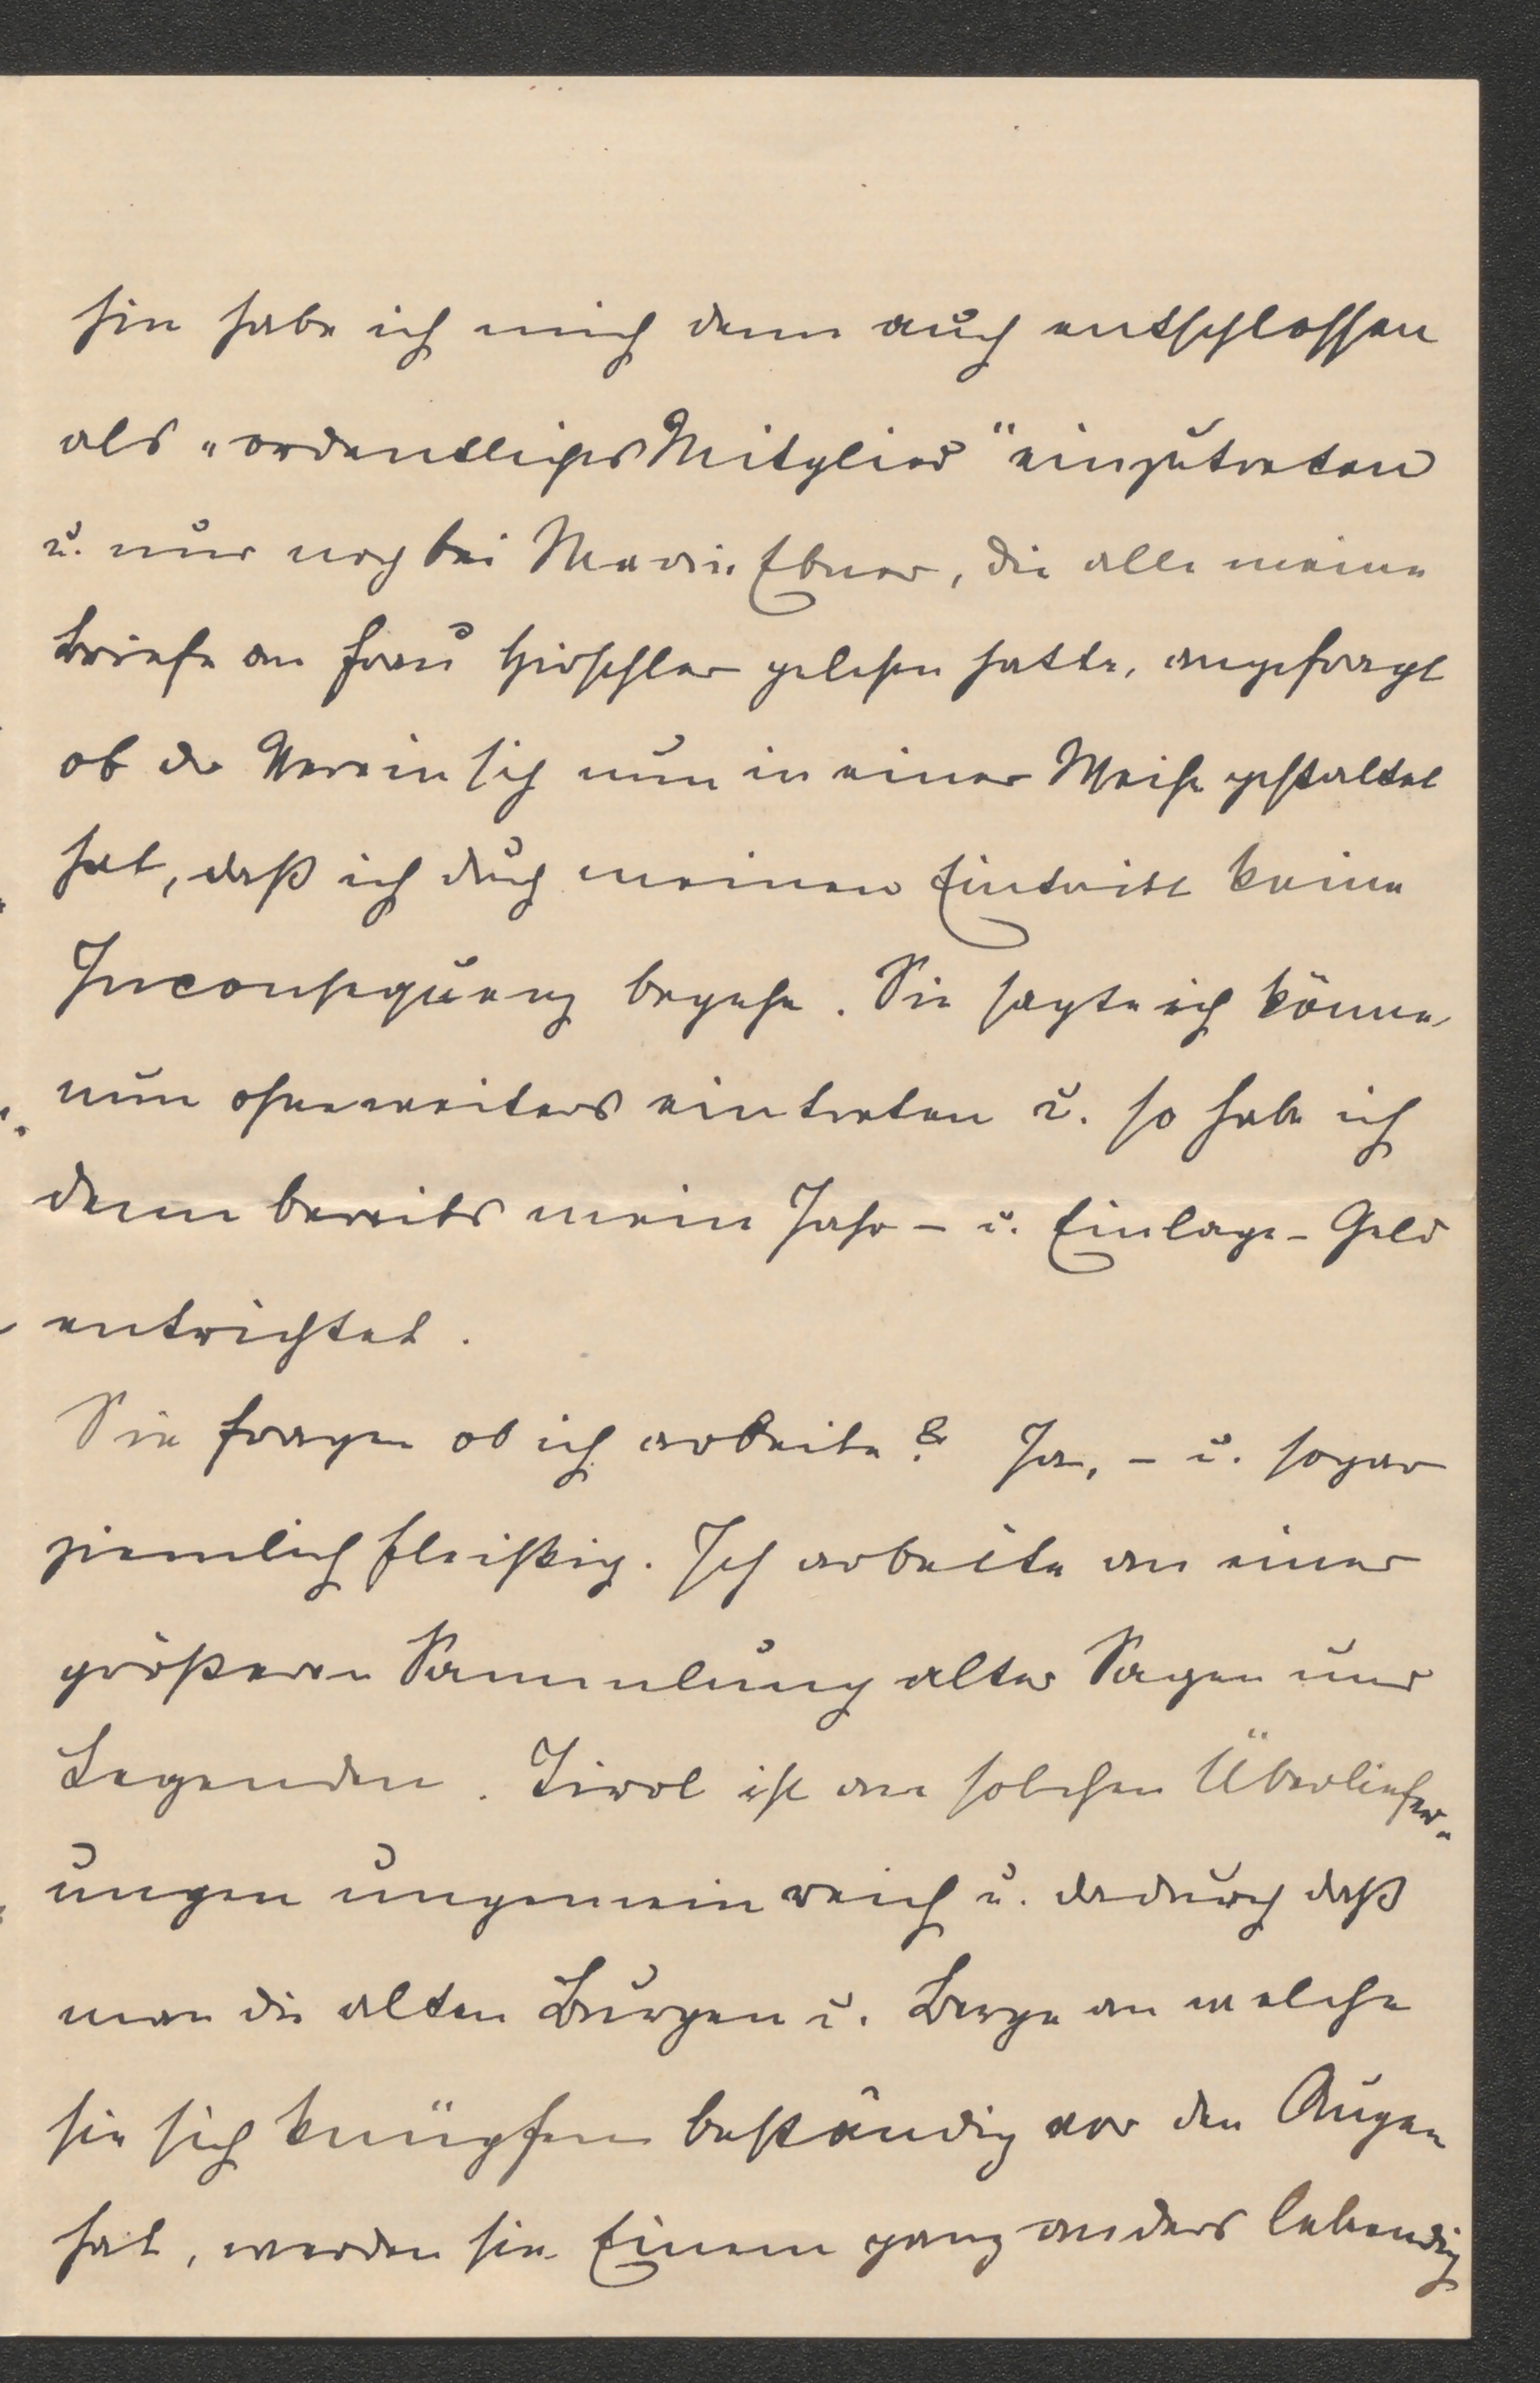 hin habe ich mich denn auch entschlossen
als „ordentliches Mitglied" einzutreten
u. nur noch bei Marie Ebner, die alle meine
Briefe an Frau Hirschler gelesen hatte, angefragt
ob der Verein sich nun in einer Weise gestaltet
hat, daß ich durch meinen Eintritt keine
Inconsequenz begehe. Sie sagte ich könne
nun ohneweiters eintreten u. so habe ich
denn bereits mein Jahr- u. Einlage-Geld
entrichtet.
Sie fragen ob ich arbeite? Ja, - u. sogar
ziemlich fleißig. Ich arbeite an einer
größeren Sammlung alter Sagen und
Legenden. Tirol ist an solchen Überliefer-
ungen ungemein reich u. dadurch daß
man die alten Burgen u. Berge an welche
sie sich knüpfen beständig vor den Augen
hat, werden sie Einem ganz anders lebendig